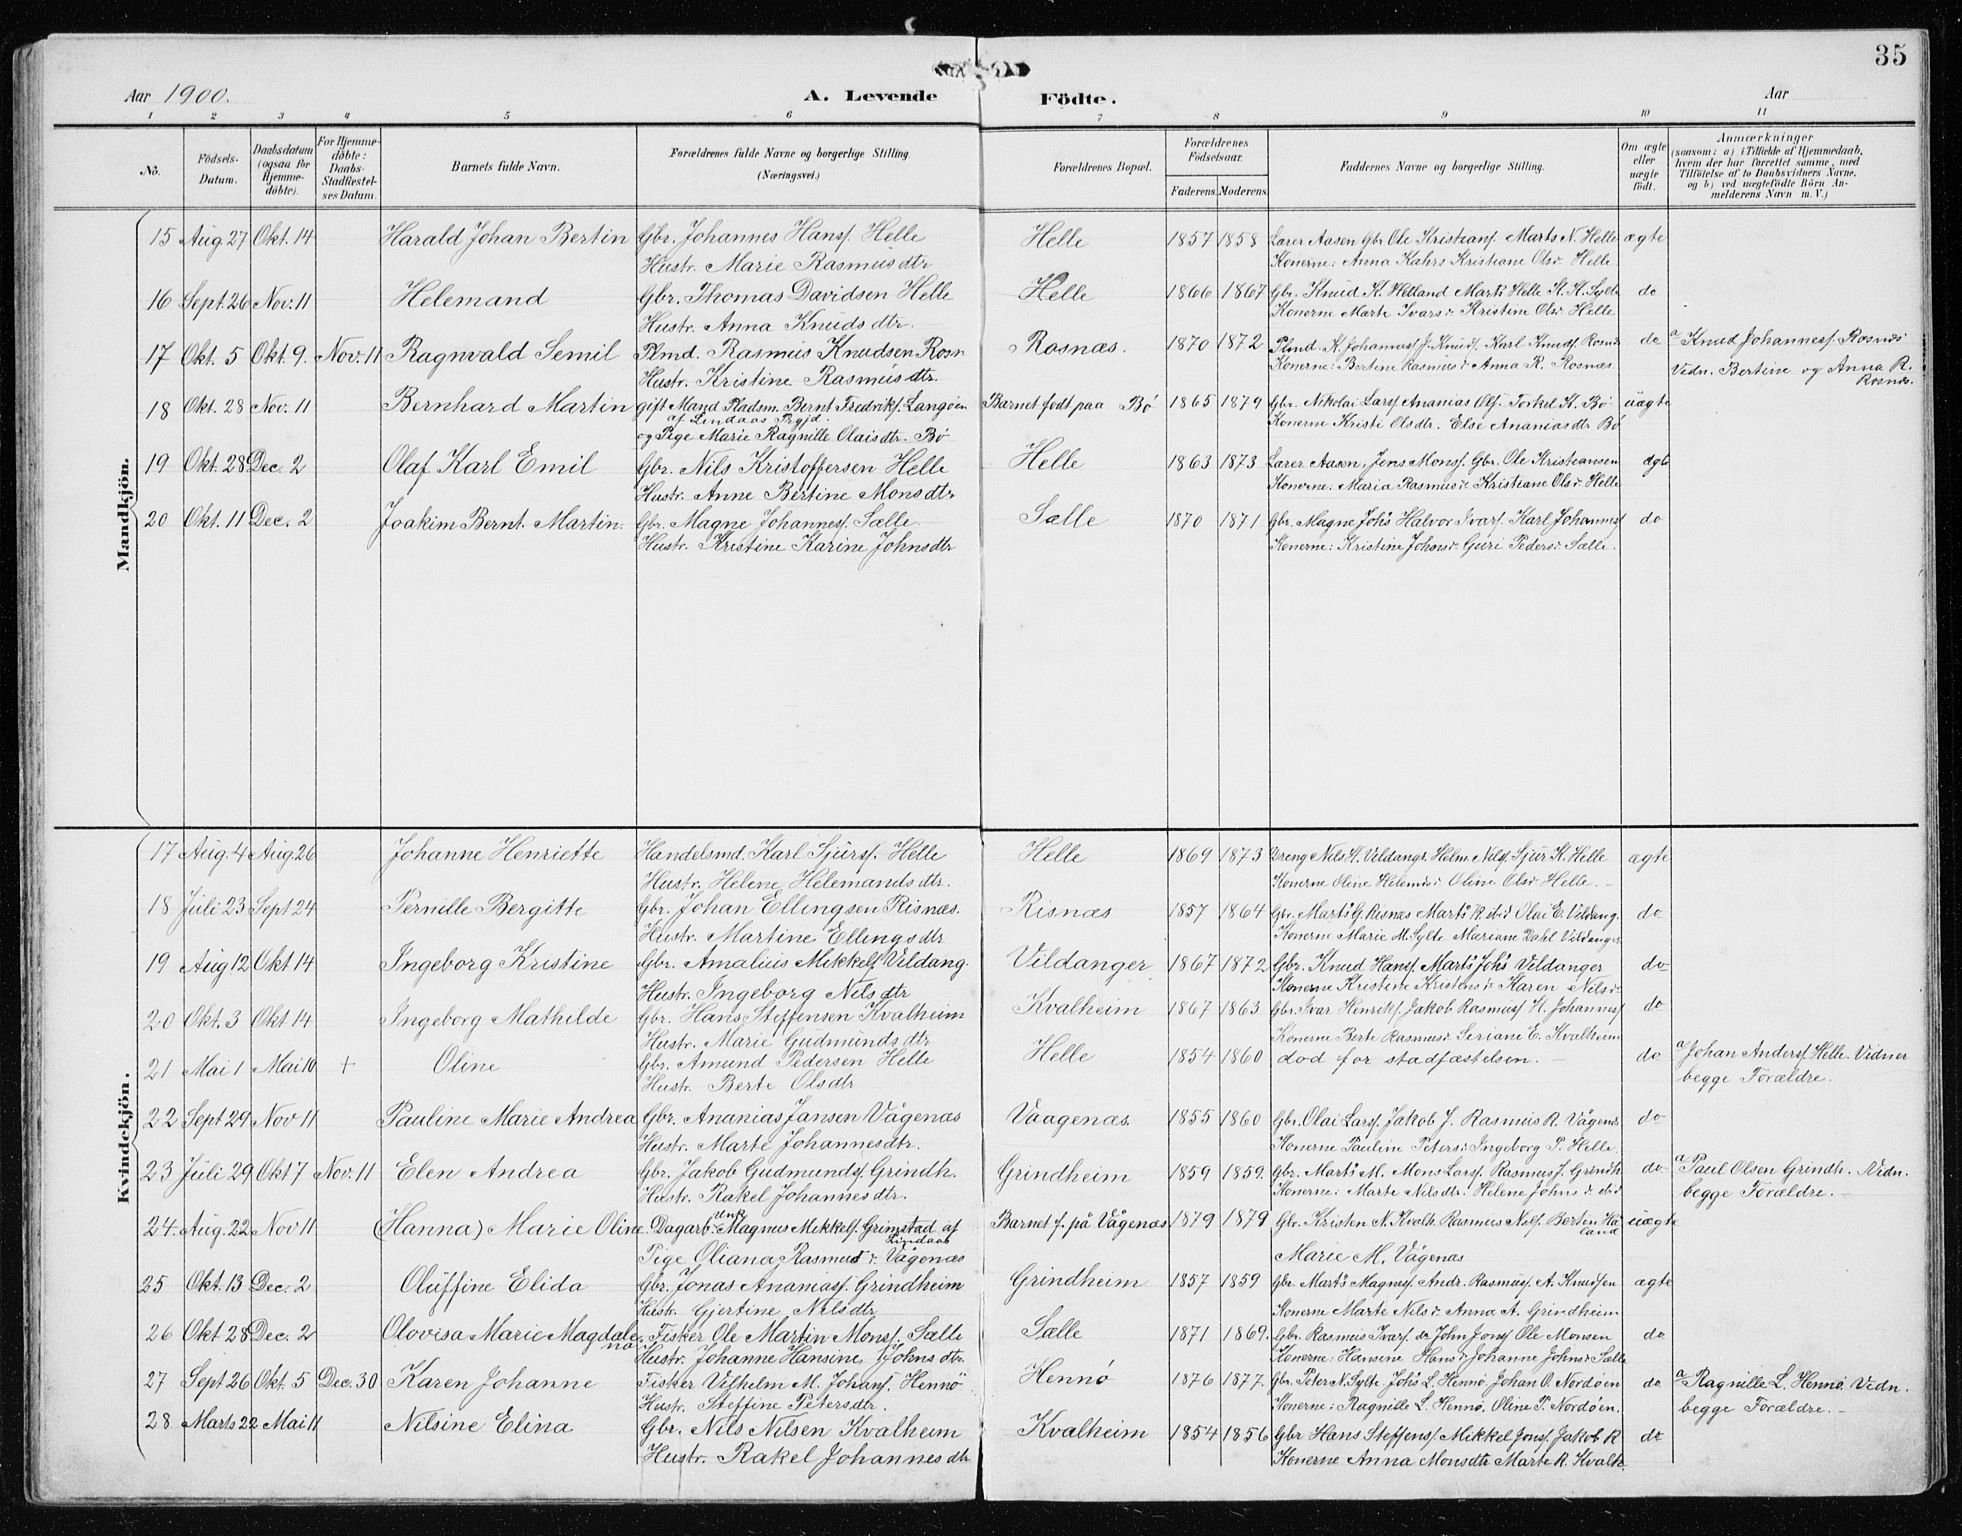 35
Aar 1900.
A. Levende Födte.
Aar
1 2 3 4 5 6 7 8 9 10 11
No.
Födsels-Datum.
Daabsdatum (ogsaa för Hjemmedöbte).
For Hjemmedöbte: Daabs-Stadfæstelses Datum.
Barnets fulde Navn.
Forældrenes fulde Navne og borgerlige Stilling (Næringsvei.)
Forældrenes Bopæl.
Forældrenes Födselsaar.
Faderens. Moderens.
Faddernes Navne og borgerlige Stilling.
Om ægte eller uægte födt.
Anmærkninger
(saasom: a) i Tilfælde af Hjemmedaab, hvem der har forrettet samme, med Tilföielse af to Daabsvidners Navne, og b) ved uægtefödte Börn Anmelderens Navn m. V.)
Mandkjön.
15 Aug 27 Okt. 14 Harald Johan Bertin Gbr. Johannes Hansf. Helle Helle 1857 1858 Lærer Aasen Gbr Ole Kristiansf. Marts N. Helle ægte
Hustr. Marie Rasmusdtr Konerne: Anna Kahrs Kristiane Olsdr Helle
16 Sept. 26 Nov. 11 Helemand Gbr. Thomas Davidsen Helle Helle 1866 1867 Gbr. Knud K. Helland Marts Helle K. K. Sylte do
Hustr. Anna Knudsdtr. Konerne Marte Ivarsdr Kristine Olsdr Helle
17 Okt. 5 Okt. 9. Nov. 11 Ragnvald Semil Plmd. Rasmus Knudsen Rosn Rosnæs. 1870 1872 Plmd K. Johannesf. J. Knudsf. Karl Knudsf. Rosnæs do a Knud Johannesf. Rosnæs
Hustr. Kristine Rasmusdtr. Konerne: Bertine Rasmusdr Anna R. Rosnæs Vidn. Bertine og Anna R. Rosnæs.
18 Okt. 28 Nov. 11 Bernhard Martin gift Mand Pladsm. Bernt Fredriksf. Langöen Barnet født paa Bö 1865 1879 Gbr. Nikolai Larsf Ananias Olsf. Torkel K. Bö uægte
af Lindaas Prgjd.
og Pige Marie Ragnille Olaisdtr. Bö Konerne Kristi Olsdtr. Else Ananiasdtr Bö
19 Okt. 28 Dec. 2 Olaf Karl Emil Gbr. Nils Kristoffersen Helle Helle 1863 1873 Lærer Aasen, Jens Monsf. Gbr. Ole Kristiansen ægte
Hustr. Anne Bertine Monsdtr Konerne: Maria Rasmusdr Kristiane Olsdr Helle
20 Okt. 11 Dec. 2 Joakim Bernt Martin. Gbr. Magne Johannesf. Sælle Sælle 1870 1871 Gbr. Magne Joh's Halvor Ivarsf. Karl Johannesf do
Hustr. Kristine Karine Johnsdtr Konerne: Kristine Johnsdr Guri Pedersdr Sælle.
Kvindekjön.
17 Aug. 4 Aug 26 Johanne Henriette Handelsmd. Karl Sjursf. Helle Helle 1869 1873 Dreng Nils K. Vildangr. Helm. Nilsf. Sjur K. Helle ægte
Hustr. Helene Helemandsdtr. Konerne Oline Helemsdr Oline Olsdr Helle.
18 Juli 23 Sept 24 Pernille Bergitte Gbr. Johan Ellingsen Risnæs. Risnæs 1857 1864 Gbr. Marts G. Risnæs Marts R. ibid Olai E. Vildang. do
Hustr. Martine Ellingsdtr Konerne Marie M. Sylte Mariane Dahl Vildanger
19 Aug 12 Okt 14 Ingeborg Kristine Gbr. Amalius Mikkelf. Vildang. Vildanger 1867 1872 Gbr. Knud Hansf. Marts Joh's Vildanger do
Hustr. Ingeborg Nilsdtr Konerne Kristine Kristensdr Karen Nilsdr
20 Okt. 3 Okt 14 Ingeborg Mathilde Gbr. Hans Steffensen Kvalheim Kvalheim 1867 1863 Gbr. Ivar Henriksf. Jakob Rasmusf K. Johannesf do
Hustr. Marie Gudmundsdtr Konerne Berte Rasmusdr Seriane E. Kvalheim
21 Mai 1 Mai 10 + Oline Gbr. Amund Pedersen Helle Helle 1854 1860 død for stadfæstelsen. do a Johan Andersf. Helle. Vidner
Hustr. Berte Olsdtr begge Forældre.
22 Sept 29 Nov 11 Pauline Marie Andrea Gbr. Ananias Jansen Vågenæs Vaagenæs 1855 1860 Gbr. Olai Larsf. Jakob J. Rasmus R. Vågenæs do
Hustr. Marte Johannesdtr. Konerne Pauline Petersdr Ingeborg P. Helle
23 Juli 29 Okt 7 Nov. 11 Elen Andrea Gbr. Jakob Gudmundsf. Grindh. Grindheim 1859 1859. Gbr. Marts M. Mons Larsf. Rasmus J. Grindh. do a Paul Olsen Grindh. Vidn.
Hustr. Rakel Johannesdtr. Konerne: Marte Nilsdtr. Helene Johnsdr ibid begge Forældre.
24. Aug. 22 Nov 11 (Hanna) Marie Oline Dagarb. Unk Magnus Mikkelf. Grimstad af Lindaas Barnet f. på Vågenæs 1879 1879 Gbr. Kristen N. Kvalh. Rasmus Nilsf. Berten Haland uægte
Pige Oliana Rasmusdr Vågenæs Marie M. Vågenæs
25 Okt. 13 Dec. 2 Oluffine Elida Gbr. Jonas Ananiasf. Grindheim Grindheim 1857 1859 Gbr. Marts Magnesf. Andr. Rasmusf. A. Knudsen ægte
Hustr. Gjertine Nilsdtr Konerne Marte Nilsdr Anna A. Grindheim
26 Okt 28 Dec. 2 Olovisa Marie Magdalena. Fisker Ole Martin Monsf. Sælle Sælle 1871 1869. Gbr. Rasmus Ivarsf. do John Jonsf Ole Monsen do
Hustr. Johanne Hansine Johnsdtr. Konerne: Hansine Hansdr Johanne Johnsdr Sælle
27 Sept 26 Okt. 5 Dec. 30 Karen Johanne Fisker Vilhelm M. Johansf. Hennö Hennö 1876 1877. Gbr. Peter N. Sylte. Joh's L. Hennö. Johan O. Nordöen do a Ragnille L. Hennö. Vidn.
Hustr. Steffine Petersdtr. Konerne: Ragnille L. Hennö. Oline P. Nordöen. begge Forældre.
28 Marts 22 Mai 11 Nilsine Elina Gbr. Nils Nilsen Kvalheim Kvalheim 1854 1856 Gbr Hans Steffensf. Mikkel Jonsf. Jakob R do
Hustr. Rakel Johannesdtr Konerne Anna Monsdtr Marte R. Kvalh.